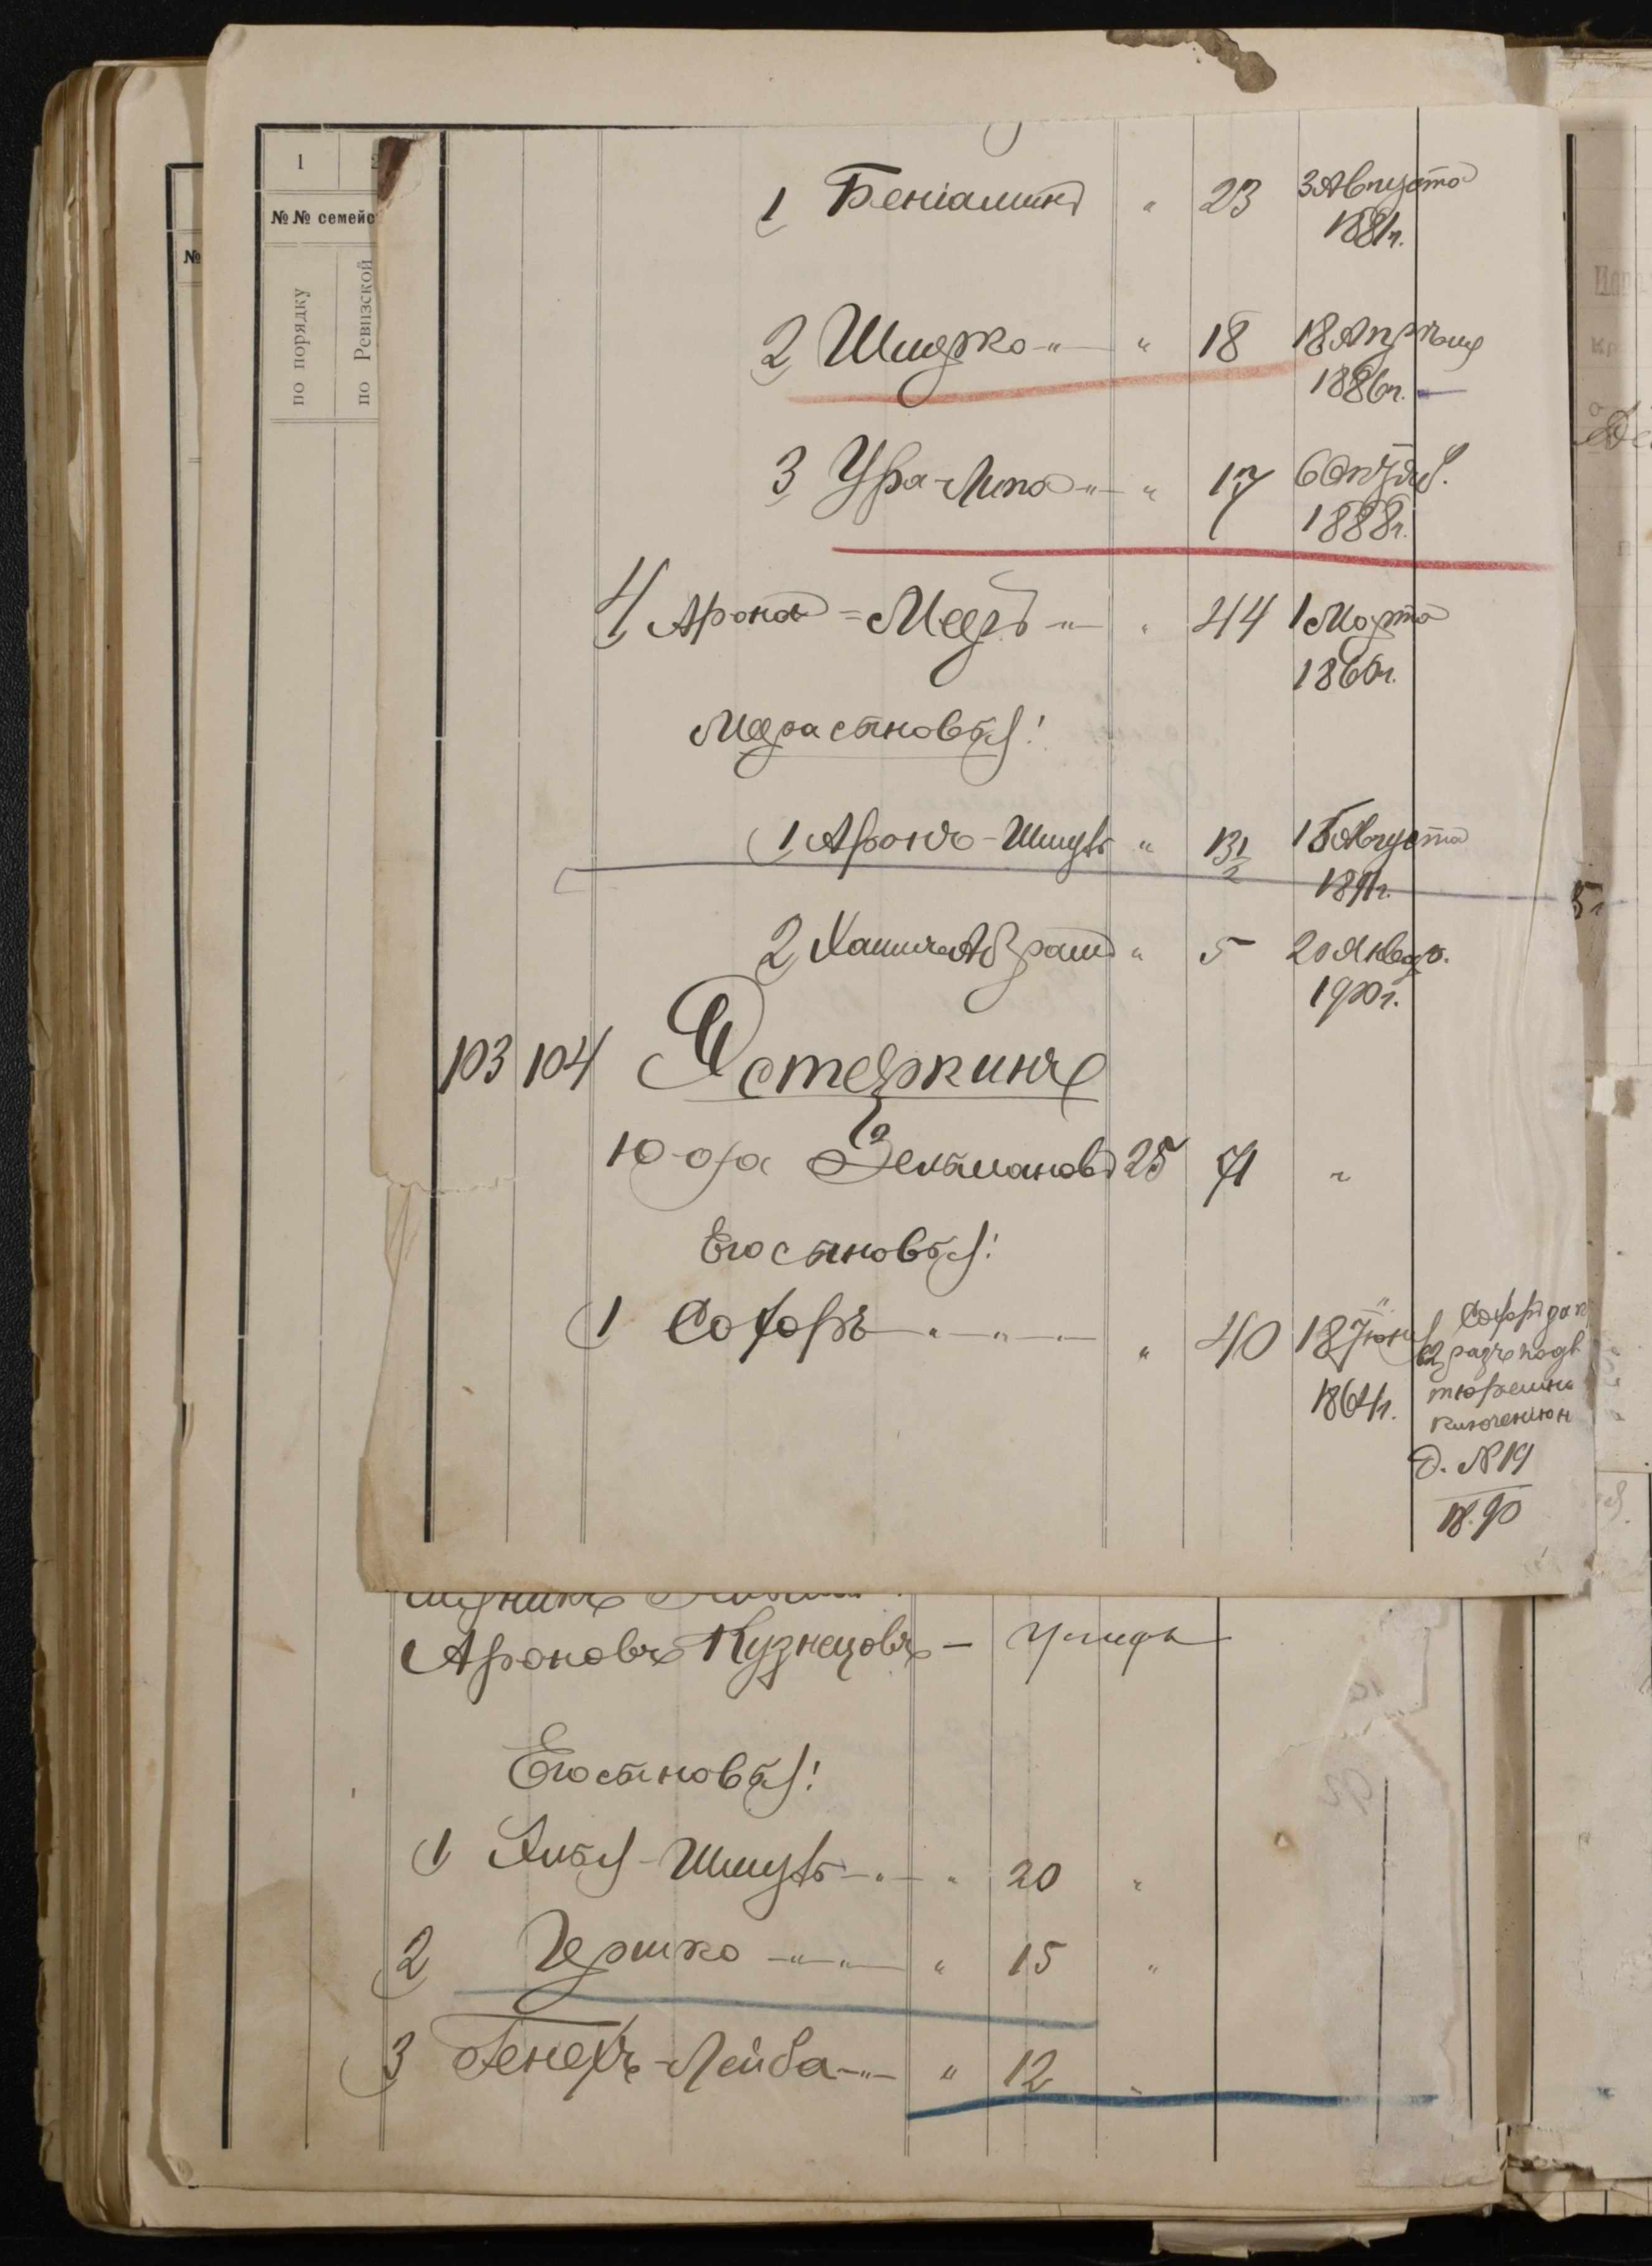 1 2
№№ семейс
№
по порядку
по Ревизской
1 Беніаминъ " 23 3 Августа
1881 г.
2 Шмерко " " 18 18 Апрѣля
1886 г.
3 Ура-Липа " " 17 6 Октяб.
1888 г.
4 Арона = Мееръ " " 44 1 Марта
1860 г.
Меера сыновья:
1 Аронъ-Шмуль " 13 1/2 15 Августа
1891 г.
2 Хаимъ Абрамъ " 5 20 Январ.
1900 г.
103 104 Эстеркинъ
Зельмановъ 25 71 "
Его сыновья:
1 Соферъ " " " " 40 18 Іюня
1864 г.
Соферъ
тюремн
ключенію н
Д. № 19
18.90
Ароновъ Кузнецовъ — умеръ
Его сыновья:
1 Шмуль " " 20 "
2 Гершко " " " 15 "
3 Генехъ-Лейба " " 12 "